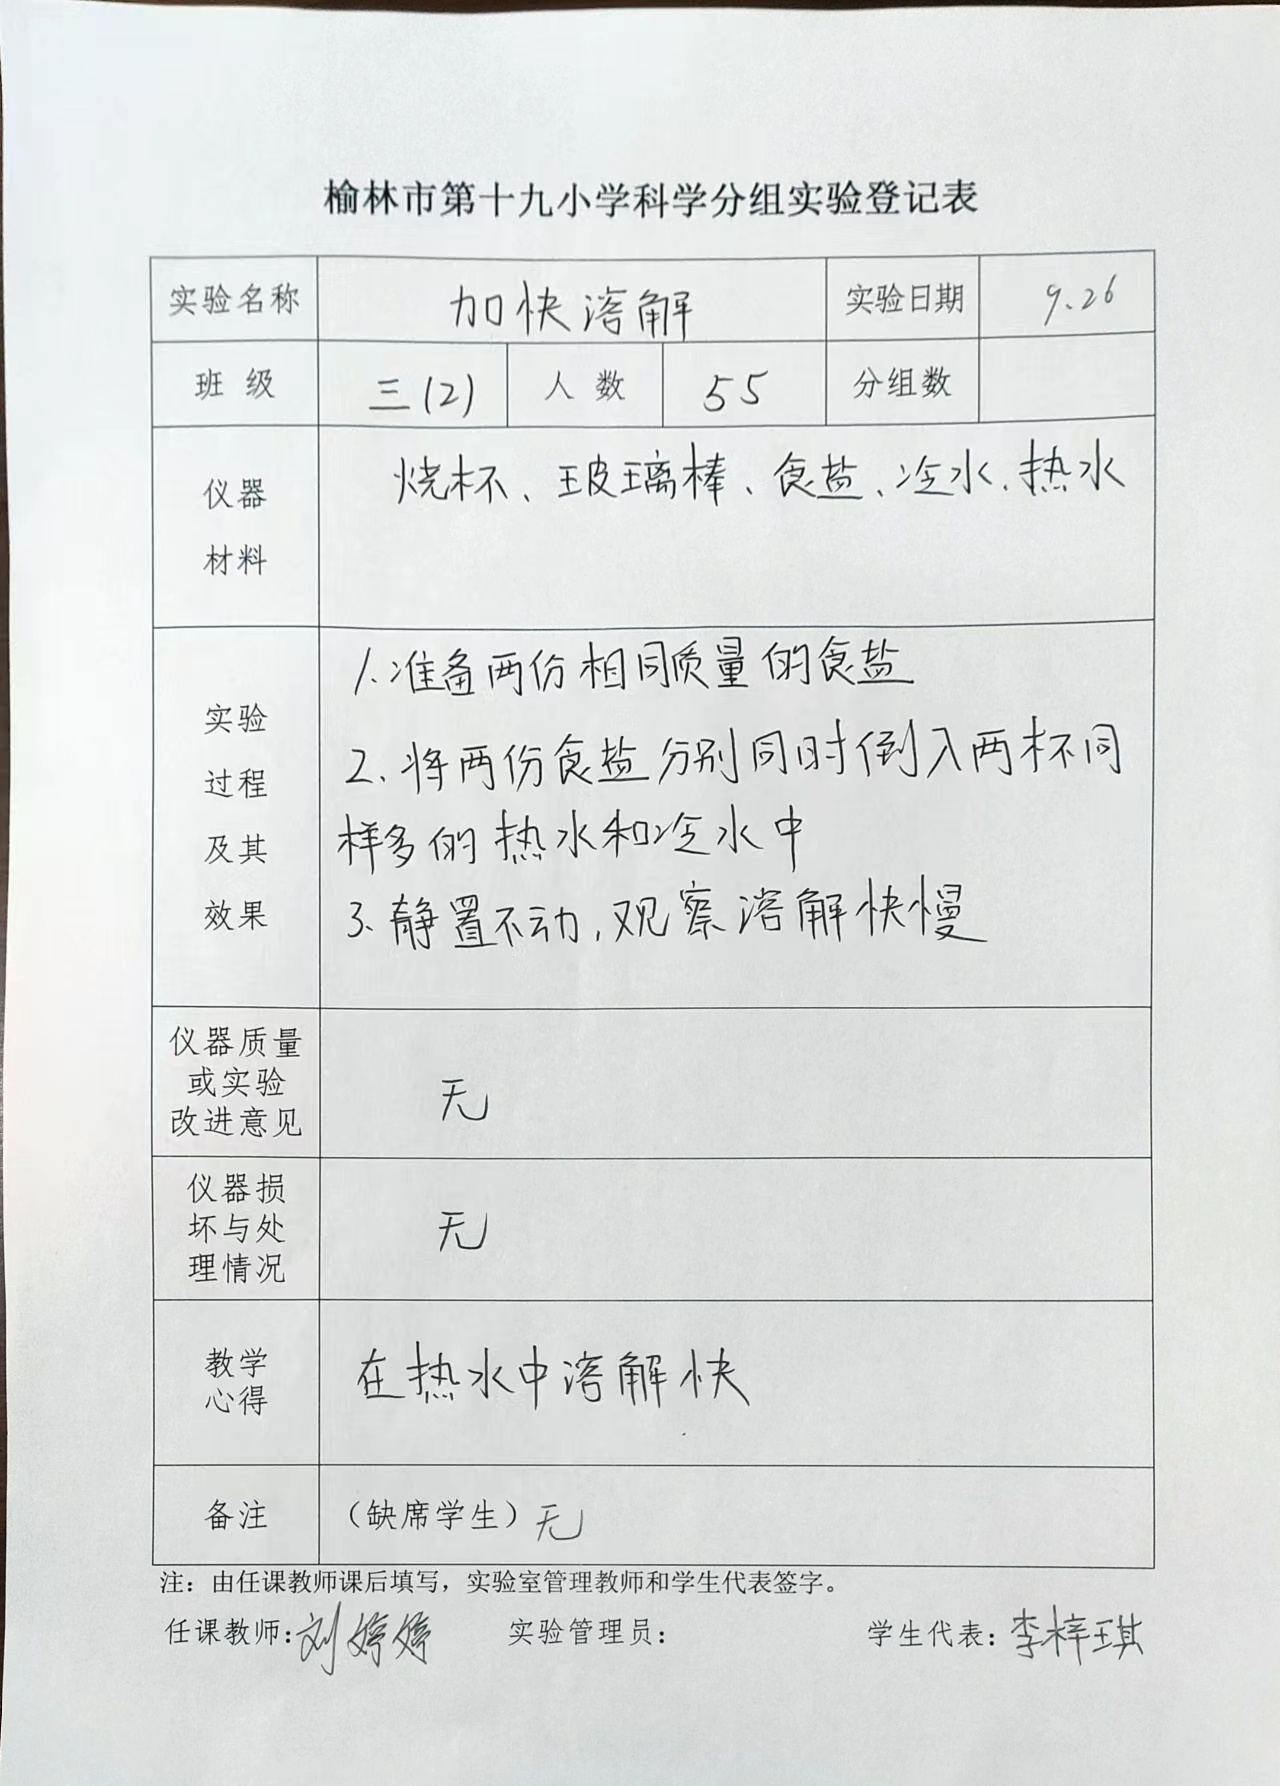 榆林市第十九小学科学分组实验登记表
实验名称 加快溶解 实验日期 9.26
班 级 三(2) 人 数 55 分组数
仪器
材料
烧杯、玻璃棒、食盐、冷水、热水
实验
过程
及其
效果
1.准备两份相同质量的食盐
2.将两份食盐分别同时倒入两杯同
样多的热水和冷水中
3.静置不动,观察溶解快慢
仪器质量
或实验
改进意见
无
仪器损
坏与处
理情况
无
教学
心得
在热水中溶解快
备注 （缺席学生）无
注：由任课教师课后填写，实验室管理教师和学生代表签字。
任课教师：刘婷婷 实验管理员： 学生代表：李梓琪